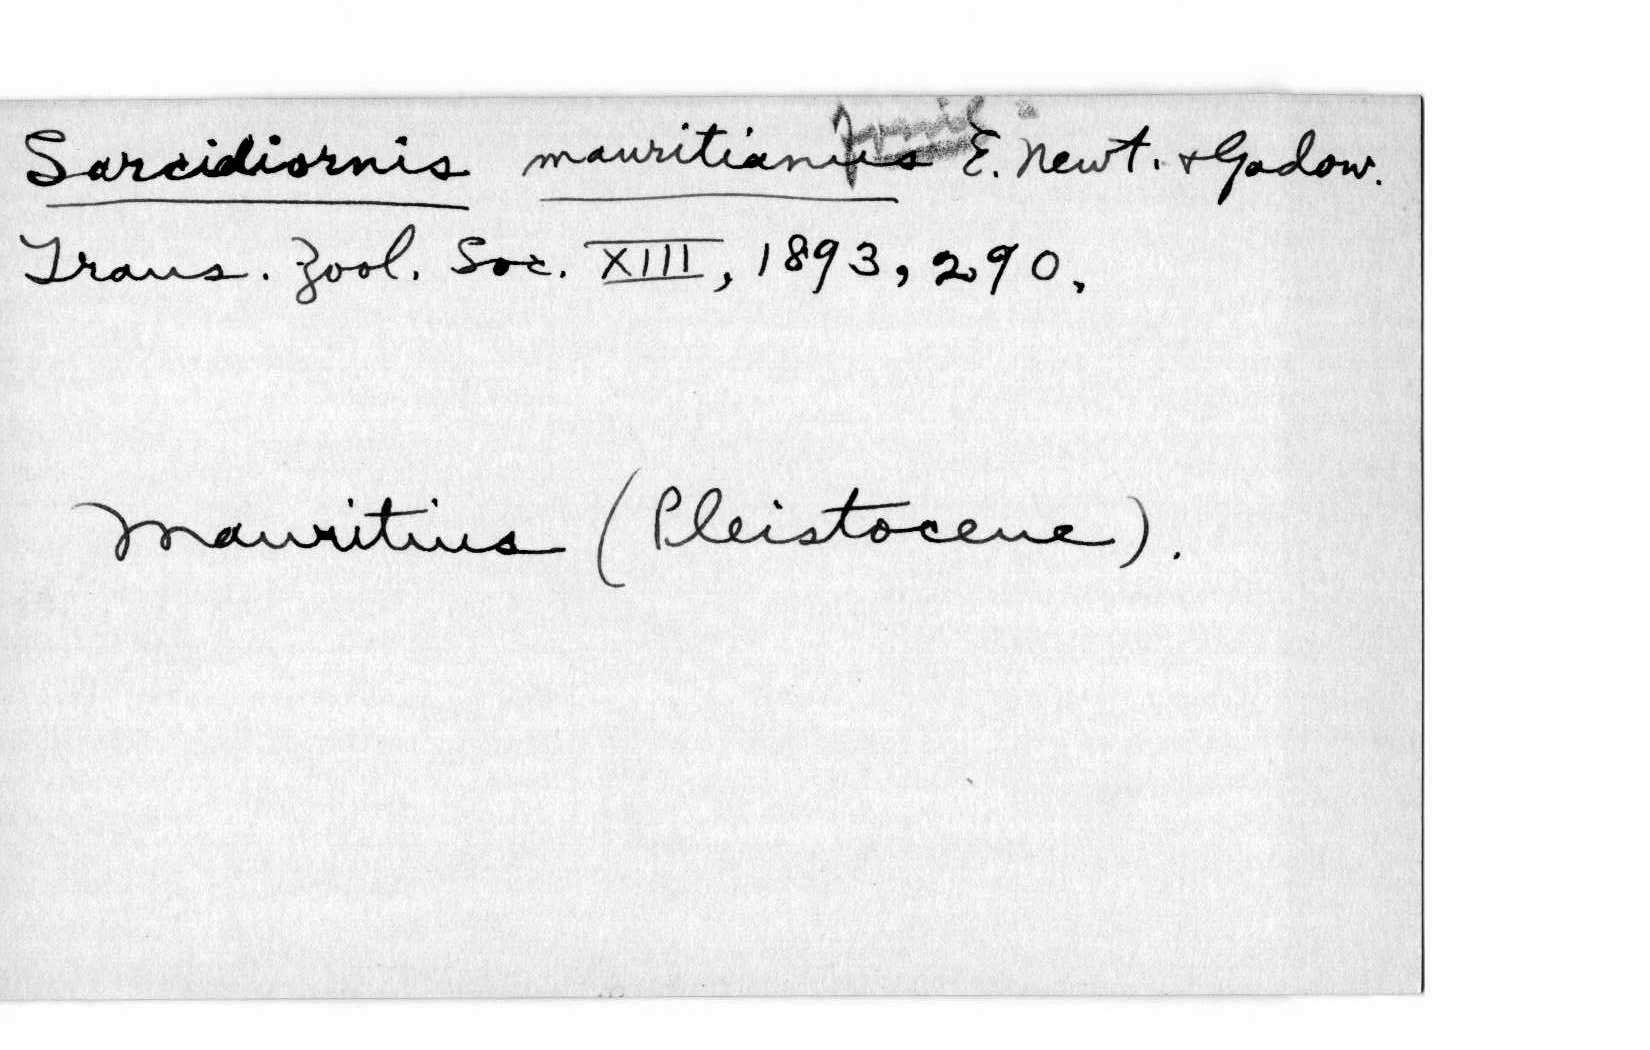 Fossil
Sarcidiornis mauritianus E. Newt. & Gadow.
Trans. Zool. Soc. XIII, 1893, 290.
Mauritius (Pleistocene).